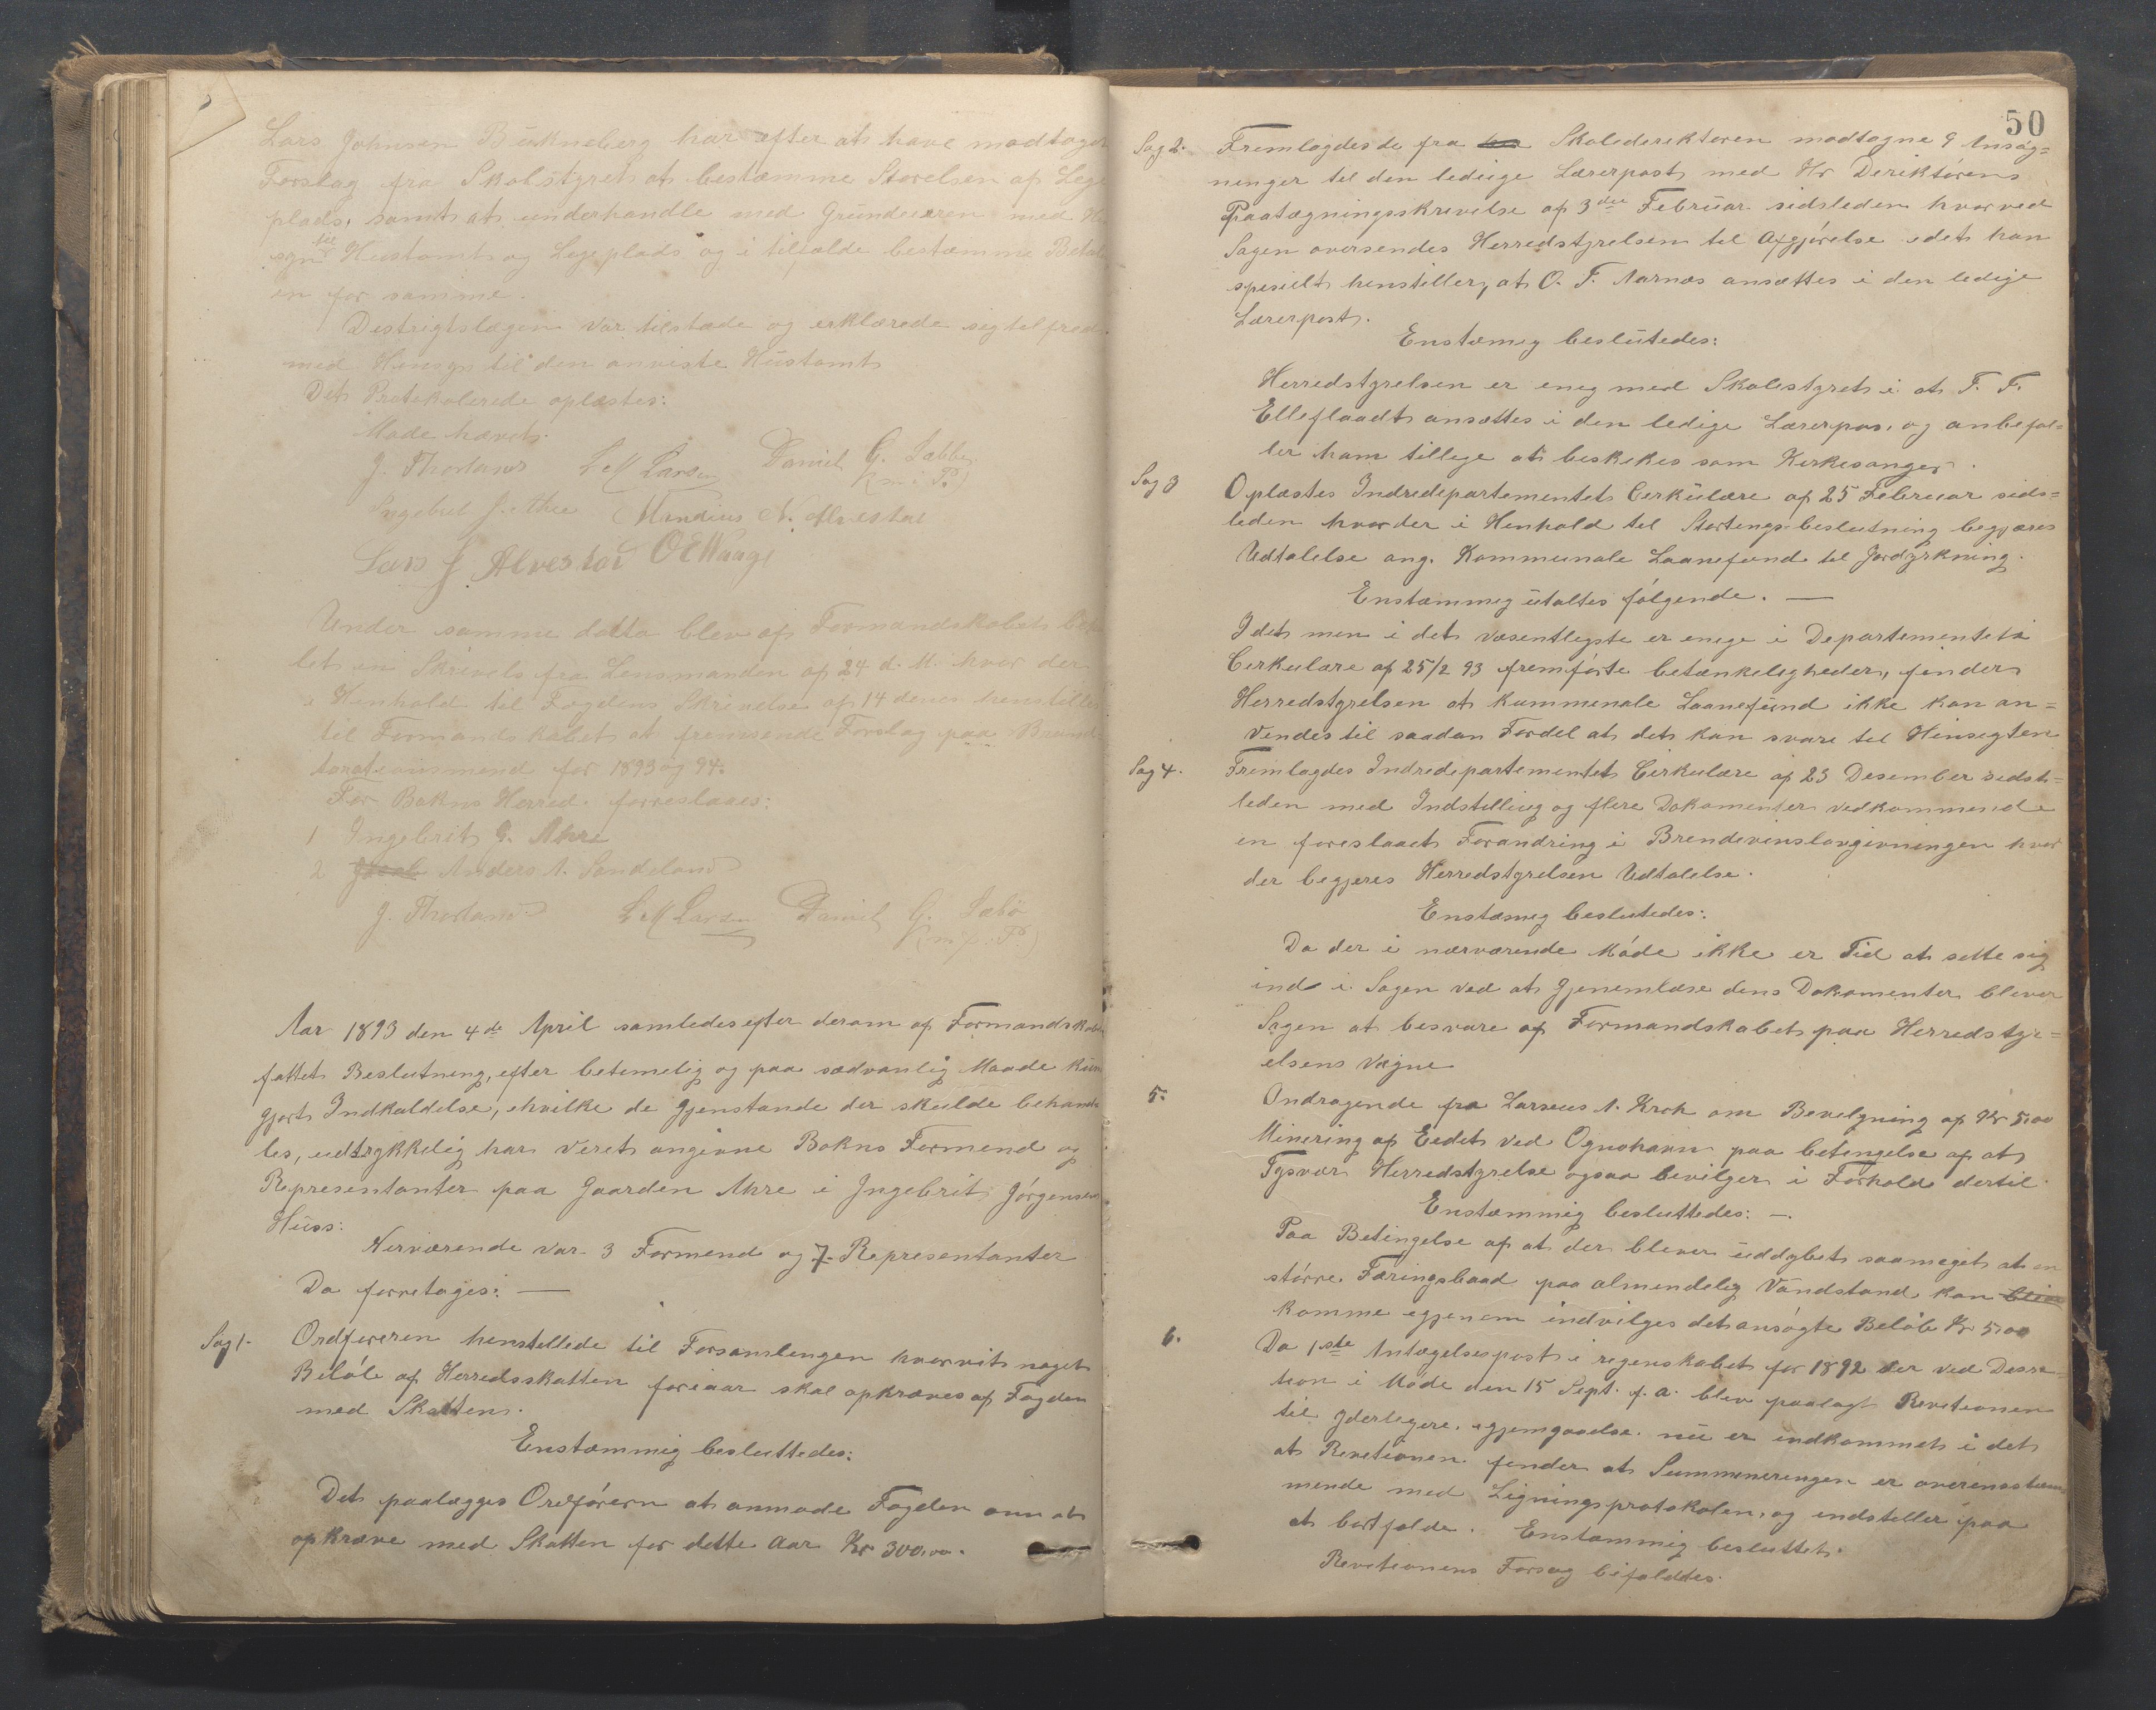 Lars Johnsen Bukneberg har efter at have modtaget
Forslag fra Skolstyret at bestemme Størelsen af Lege
plads, samt at underhandle med Grundeieren med Hen
syn til Hustomt og Legeplads og i tilfælde bestemme Betal
en for samme.
Destrigtslægen var tilstæde og erklærede sig tilfreds
med Hinsyn til den anviste Hustomt
Det Protokolerede oplæstes:
Møde hævet.
J. Thorland L M Larsen Daniel G. Sæbbø
(m. f. P.)
Ingebret J. Ahre Mandius N. Alvestad
Lars J Alvestad O E Waage
Under samme datto blev af Formandskabet behand
let en Skrivels fra Lensmanden af 24 d. M. hvor der
i Henhold til Fogdens Skrivelse af 14 denes henstilles
til Formandskabet at fremsende Forslag paa Brand
taxationsmend for 1893 og 94.
For Bokns Herred forreslaaes:
1 Ingebrit J. Ahre
2 Anders A. Sandeland
J. Thorland L M Larsen Daniel G. Sæbø
(m. f. P.)
Aar 1893 den 4de April samledes efter derom af Formandskabet
fattet Beslutning, efter betimelig og paa sædvanlig Maade kund
gjort Indkaldelse, ihvilke de Gjenstande der skulde behand
les, udtrykkelig har veret angivne Bokns Formend og
Representanter paa Gaarden Ahre i Ingebrit Jørgensens
Huss:
Nerværende var 3 Formend og 7 Representanter
Da forretages: —
Sag 1. Ordføreren henstillede til Forsamlingen hvorvit noget
Beløb af Herredsskatten foriaar skal opkræves af Fogden
med Skatten.
Enstæmmig besluttedes:
Det paalægges Ordførern at anmode Fogden om at
opkræve med Skatten for dette Aar Kr 300,00.
50
Sag 2. Fremlagdes de fra Skoledirektøren modtagne 9 Ansøg=
ninger til den ledige Lærerpost med Hr Deriktørens
Paategningsskrivelse af 3die Februar sidsleden hvorved
Sagen oversendes Herredstyrelsen til Afgjørelse idet han
spesielt henstiller, at O. T. Aarnæs ansættes i den ledige
Lærerpost.
Enstæmig beslutedes:
Herredstyrelsen er enig med Skolestyret i at T. T.
Elleflaadt ansættes i den ledige Lærerpos. og anbefal=
ler ham tillige at beskikes som Kirkesanger.
Sag 3 Oplæstes Indredepartementet Cerkulære af 25 Februar sids=
leden hvorder i Henhold til Stortingsbeslutning begjæres
Udtalelse ang. Kommunale Laanefund til Jordyrkning.
Enstæmmig utaltes følgende. —
Idet men i det væsentligste er enige i Departementets
Cerkulære af 25/2 93 fremførte betænkeligheder, finder
Herredstyrelsen at kummenale Laanefund ikke kan an=
vendes til saadan Fordel at det kan svare til Hinsigten
Sag 4. Fremlagdes Indredepartementet Cerkulære af 23 Desember sidst=
leden med Indstilling og flere Dokomenter vedkommende
en foreslaaet Forandring i Brendevinslovgivningen hvor
der begjeres Herredstyrelsen Udtalelse.
Enstæmig beslutedes:
Da der i nærværende Møde ikke er Tid at sette sig
ind i Sagen ved at Gjenemlæse dens Dokomenter blever
Sagen at besvare af Formandskabet paa Herredstyr=
elsens Vægne
5. Andragende fra Larseus A. Krok om Bevilgning af Kr 5,00
Minering af Eidet ved Ognohavn paa betingelse af at
Tysvær Herredstyrelse ogsaa bevilger i Forhold dertil.
Enstæmmig besluttedes: —.
Paa Betingelse af at der blever uddybet saameget at en
større Færingsbaad paa almendelig Vandstand kan
komme egjenem indvilges det ansøgte Beløb Kr 5,00
6. Da 1ste Antægelsespost i regenskabet for 1892 der ved Dessa=
tion i Møde den 15 Sept. f. a. blev paalagt Revetionen
til yderligere egjemgaaelse nu er indkommet i det
at Revetionen finder at Summeneringen er overensstem
mende med Ligningsprotokolen, og indstiller paa
at bortfalde. Enstæmmig besluttet.
Revetionens Forsag bifaldtes.